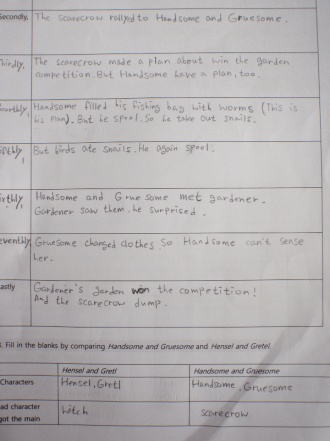 Secondly, The scarecrow rollyed to Handsome and Gruesome.
Thirdly, The scarecrow made a plan about win the garden
competition. But Handsome have a plan, too.
ourthly, Handsome filled his fishing bag with worms (This is
his plan). But he spool. So he take out snails.
ifthly, But birds ate snails. He again spool.
ixthly, Handsome and Gruesome met gardener.
Gardener saw them. he surprised.
eventhly, Gruesome changed clothes. So Handsome can't sense
her.
astly Gardener's garden won the competition!
And the scarecrow dump.
. Fill in the blanks by comparing Handsome and Gruesome and Hensel and Gretel.
Hensel and Gretl Handsome and Gruesome
Characters Hensel, Gretl Handsome, Gruesome
ad character witch scarecrow
got the main